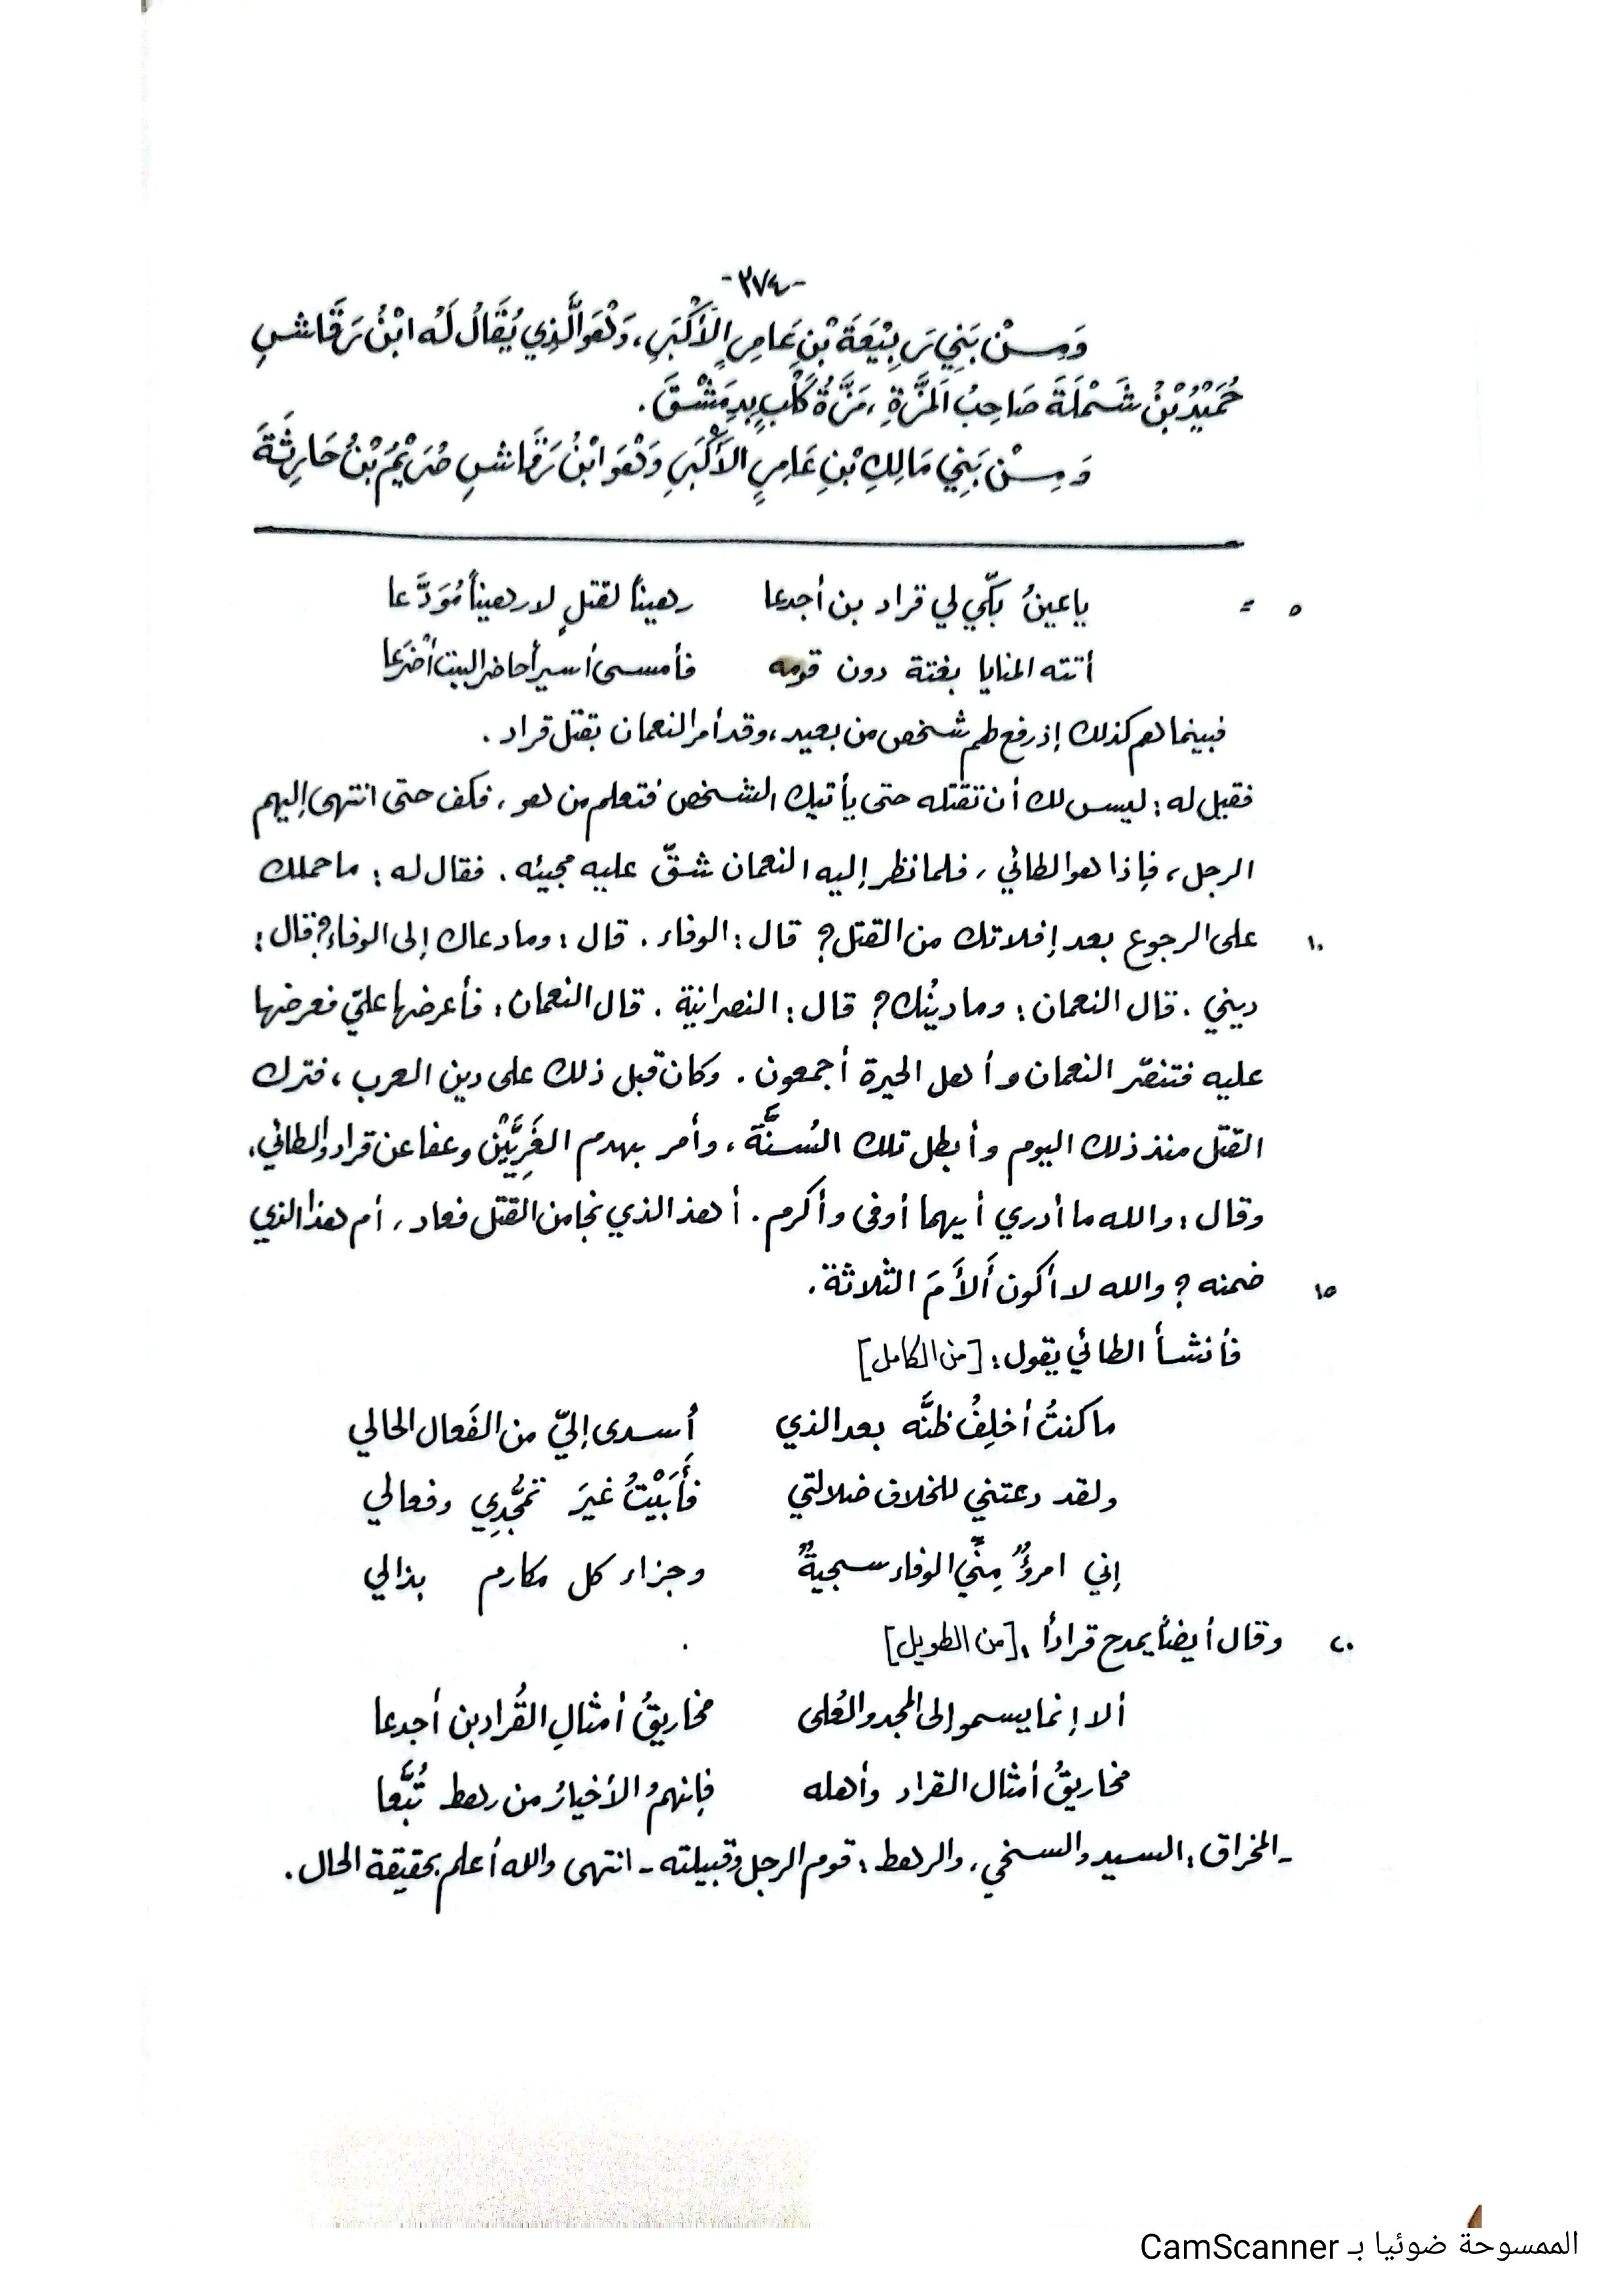 -٣٧٤-
وَمِنْ بَنِي رَبِيْعَةَ بْنِ عَامِرٍ الأَكْبَرِ، وَهُوَ الَّذِي يُقَالُ لَهُ ابْنُ رَقَاشِ
حُمَيْدُ بْنُ شَمْلَةَ صَاحِبُ المَزَّةِ، مَزَّةُ كَلْبٍ بِدِمَشْقَ.
وَمِنْ بَنِي مَالِكِ بْنِ عَامِرٍ الأَكْبَرِ وَهُوَ ابْنُ رَقَاشِ صُرَيْمُ بْنُ حَارِثَةَ
٥ = يا عينُ بكّي لي قراد بن أجدعا رهيناً لقتلٍ لا رهيناً مُوَدَّعا
أتته المنايا بغتة دون قومه فأمسى أسيراً حاضر البيت أضْرَعا
فبينما هم كذلك إذ رفع لهم شخص من بعيد، وقد أمر النعمان بقتل قراد.
فقيل له: ليس لك أن تقتله حتى يأتيك الشخص فتعلم من هو، فكف حتى انتهى إليهم
الرجل، فإذا هو الطائي، فلما نظر إليه النعمان شقّ عليه مجيئه. فقال له: ما حملك
١٠ على الرجوع بعد إفلاتك من القتل؟ قال: الوفاء. قال: وما دعاك إلى الوفاء؟ قال:
ديني. قال النعمان: وما دينُك؟ قال: النصرانية. قال النعمان: فأعرضها عليّ فعرضها
عليه فتنصّر النعمان وأهل الحيرة أجمعون. وكان قبل ذلك على دين العرب، فترك
القتل منذ ذلك اليوم وأبطل تلك السُنَّة، وأمر بهدم الغَرِيَّيْن وعفا عن قراد والطائي،
وقال: والله ما أدري أيهما أوفى وأكرم. أهذا الذي نجا من القتل فعاد، أم هذا الذي
١٥ ضمنه؟ والله لا أكون أَلأَمَ الثلاثة.
فأنشأ الطائي يقول: [من الكامل]
ما كنتُ أخلِفُ ظنَّه بعد الذي أسدى إليّ من الفَعال الخالي
ولقد دعتني للخلاف ضلالتي فأَبَيْتُ غيرَ تمجُّدِي وفعالي
إني امرؤٌ مِنِّي الوفاء سجيةٌ وجزاء كل مكارم بذالي
٢٠ وقال أيضاً يمدح قراداً: [من الطويل]
ألا إنما يسمو إلى المجد والعُلى مخاريقُ أمثالِ القُراد بن أجدعا
مخاريقُ أمثال القراد وأهله فإنهمُ الأخيارُ من رهط تُبَّعا
ـ المخراق: السيد والسخي، والرهط: قوم الرجل وقبيلته ـ انتهى والله أعلم بحقيقة الحال.
الممسوحة ضوئيا بـ CamScanner